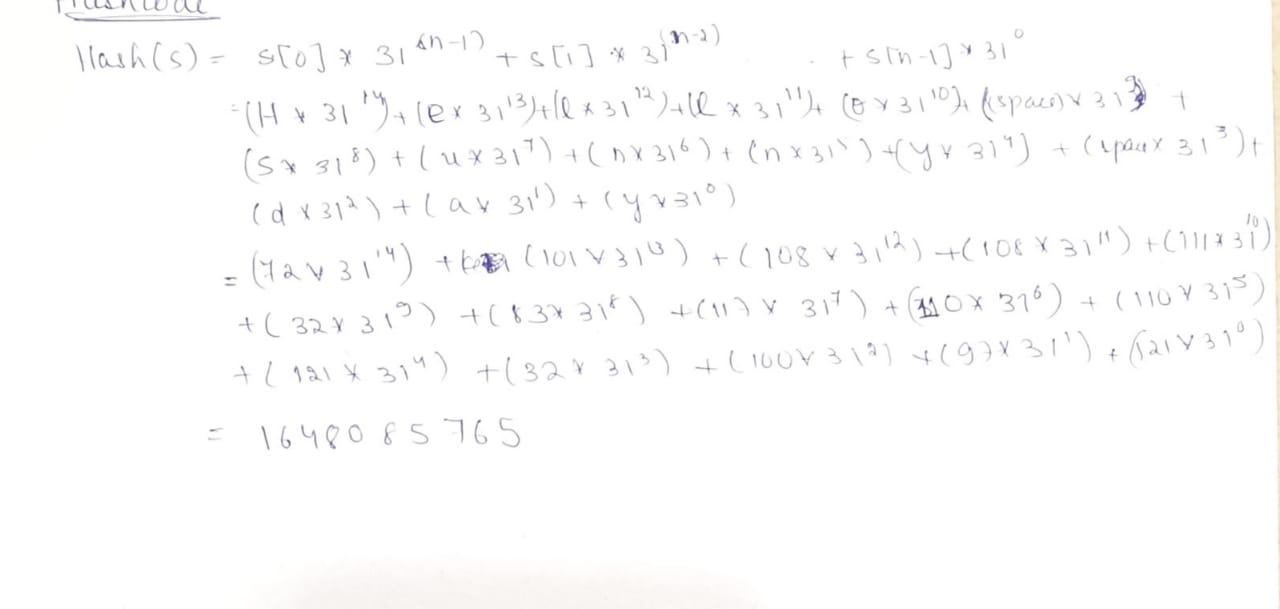 Hashcode
Hash(s) = s[0] * 31^(n-1) + s[1] * 31^(n-2) . + s[n-1] * 31^0
= (H * 31^14) + (e x 31^13) + (l x 31^12) + (l x 31^11) + (o x 31^10) + (space) x 31^9 +
(S x 31^8) + (u x 31^7) + (n x 31^6) + (n x 31^5) + (y x 31^4) + (space x 31^3) +
(d x 31^2) + (a x 31^1) + (y x 31^0)
= (72 x 31^14) + (101 x 31^13) + (108 x 31^12) + (108 x 31^11) + (111 x 31^10)
+ (32 x 31^9) + (83 x 31^8) + (117 x 31^7) + (110 x 31^6) + (110 x 31^5)
+ (121 x 31^4) + (32 x 31^3) + (100 x 31^2) + (97 x 31^1) + (121 x 31^0)
= 1648085765